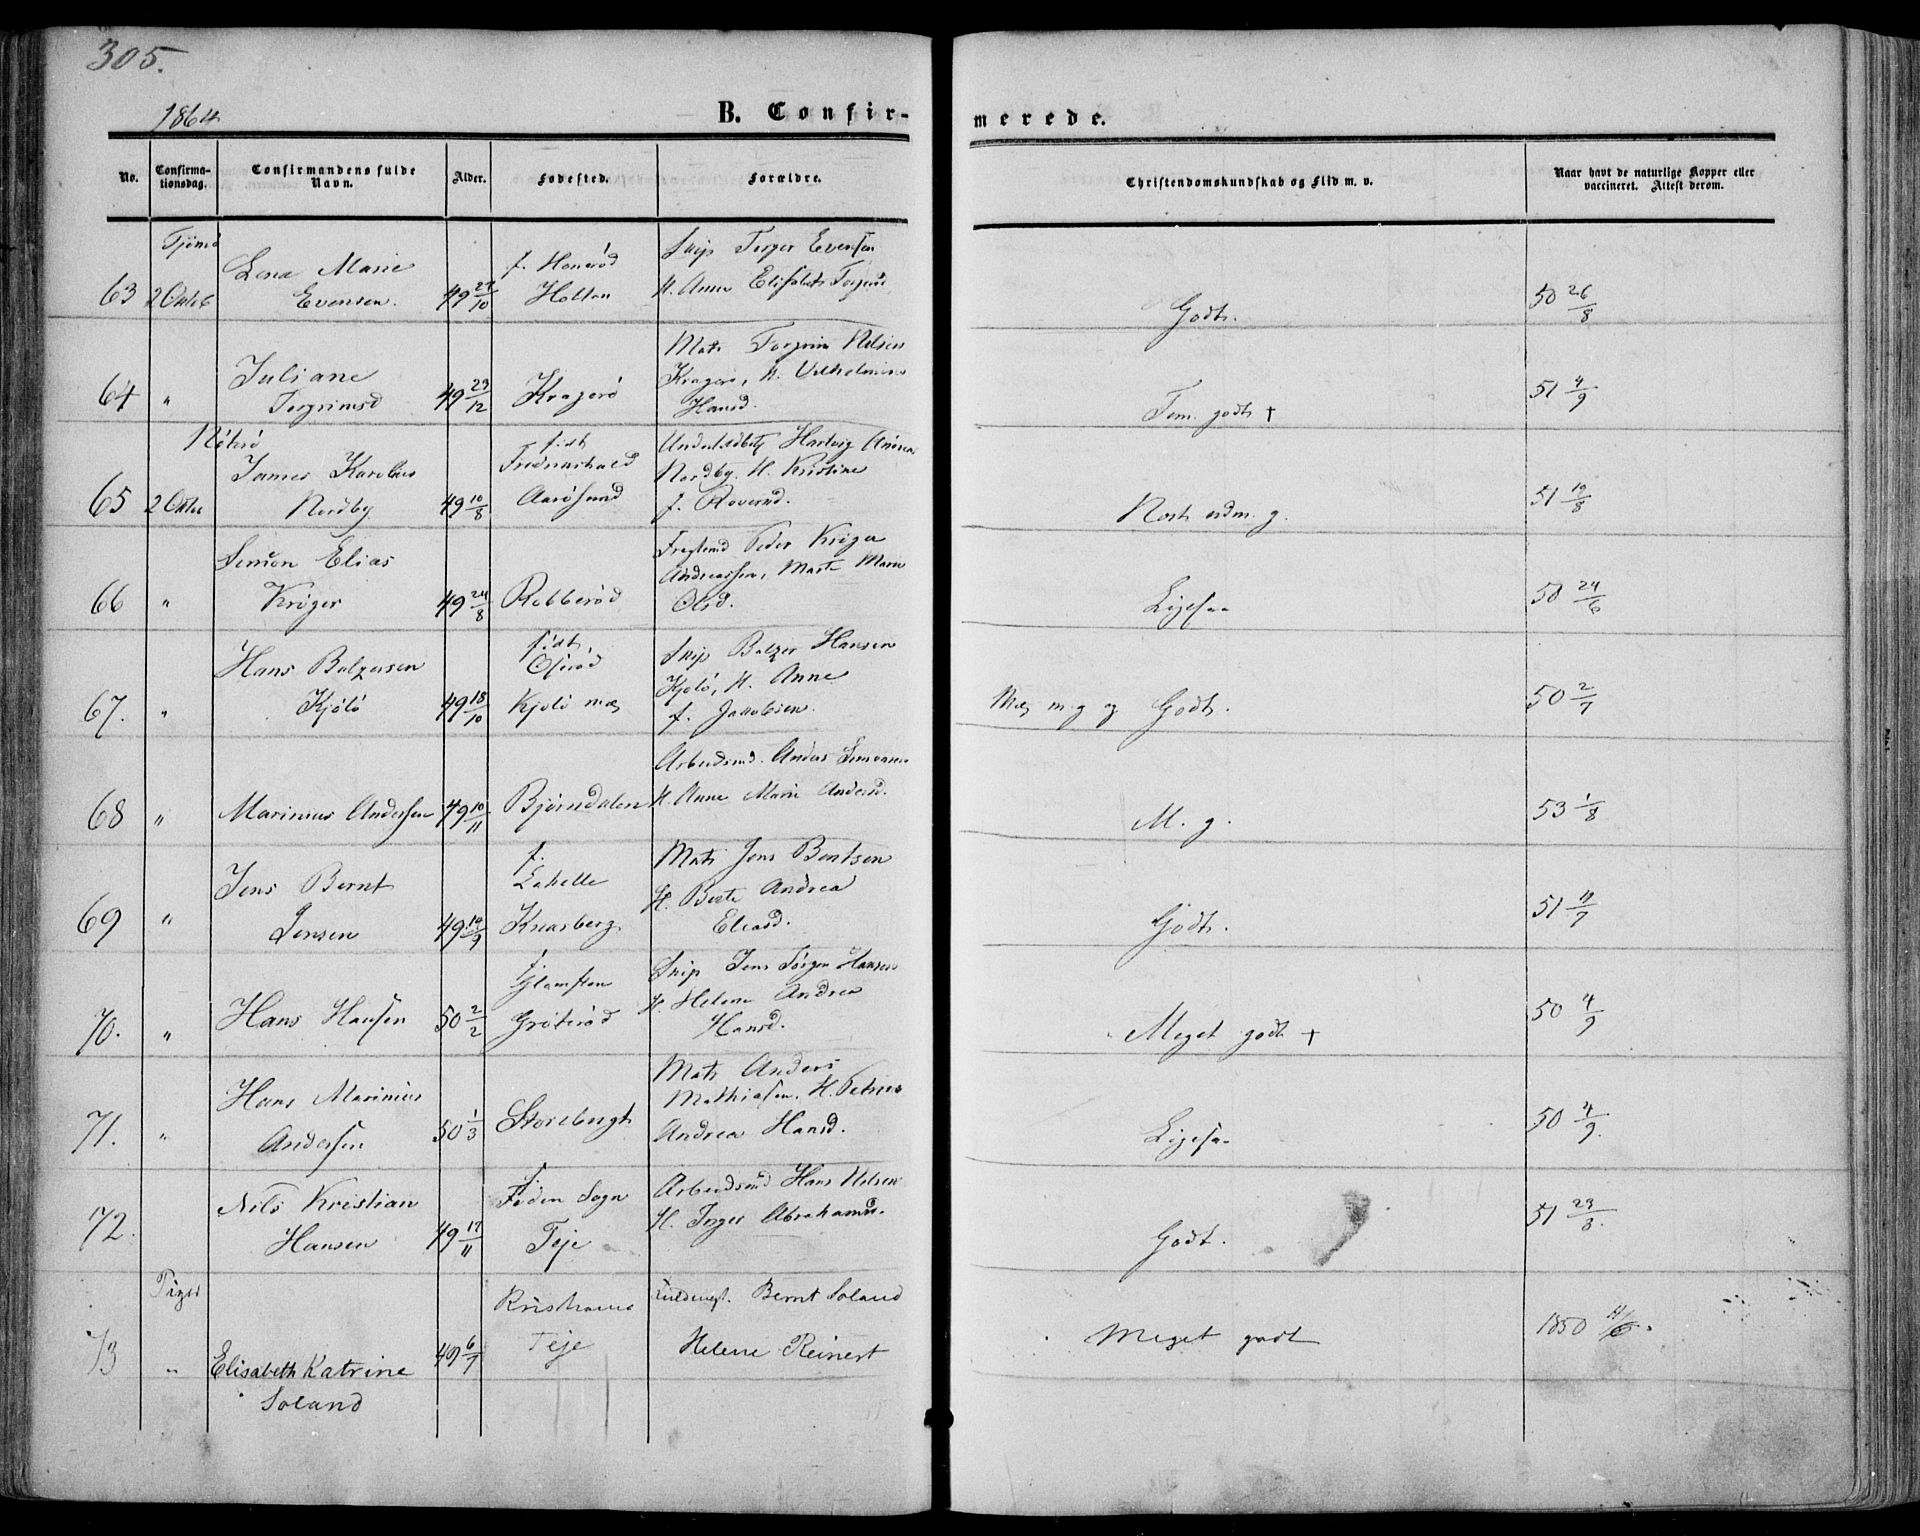 305.
1864
B. Confir-
merede.
No.
Confirma-
tionsdag.
Confirmandens fulde
Navn.
Alder.
Fødested.
Forældre.
Christendomskundskab og Flid m. v.
Naar havt de naturlige Kopper eller
vaccineret. Attest derom.
Tjømø
63 2 Octob
Lena Marie
Evensen.
49 27/10
f. Honerød
Holtan
Skip Terger Evensen
H. Anne Elisabeth
Godt.
50 26/8
64 "
Juliane
Torgrimsd
49 23/12
Kragerø
Mats Torgrim Nilsen
Kragerø, H. Vilhelmine
Hansd.
Tem. godt +
51 4/9
Nøterø
65 2 Octb
James Karolius
Nordby
49 10/8
født
Fredrikshald
Aarøsund
Hartvig
Nordby. H. Kristine
f.
51 19/8
66 "
Simon Elias
Krøger
49 24/8
Robberød
Peder Krøger
Andreassen, Marte Marie
Olsd.
Ligesaa
50 24/6
67. "
Hans Balzersen
Kjølø
49 18/10
født
Kjølø
Skip Balzer Hansen
Kjølø, H. Anne
f. Jacobsen.
m.g. og Godt.
50 2/7
68 "
Marinius Andersen
49 10/11
Bjørndalen
Arbeidsmd. Anders
H. Anne Marie Andersd.
M. g.
53 1/8
69 "
Jens Bernt
Jensen
49 14/9
f.
Knarberg
Mats Jens Bentsen
H. Berte Andrea
Eliasd.
Godt.
51 11/7
70. "
Hans Hansen
50 2/2
f.
Glomsten
Grøterød
Skip Jens Jørgen Hansen
H. Helene Andrea
Hansd.
Meget godt +
50 4/9
71. "
Hans Marinius
Andersen
50 1/3
Storebergt
Mats Anders
Mathiasen, H. Petrine
Andrea Hansd.
Ligesaa
50 4/9.
72. 
Nils Kristian
Hansen
49 17/11
f.
Sogn
Teje
Arbeidsmd Hans Nilsen
H. Inger Abrahamsd.
Godt.
51 23/8.
Piger
73 "
Elisabeth Katrine
Soland
49 6/7
Kristiania
Teje
Bernt Soland
Helene Reinert
Meget godt
1850